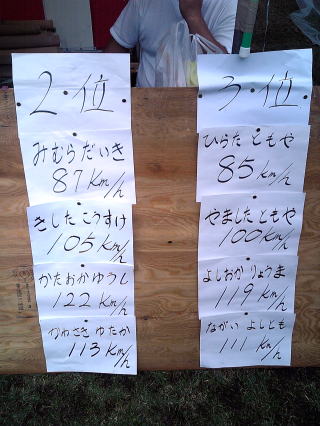 2・位
みむらだいき
87Km/h
きしたこうすけ
105Km/h
かたおかゆうし
122Km/h
かわさきゆたか
113Km/h
3・位
ひらたともや
85Km/h
やましたともや
100Km/h
よしおかりょうま
119Km/h
ながいよしとも
111Km/h